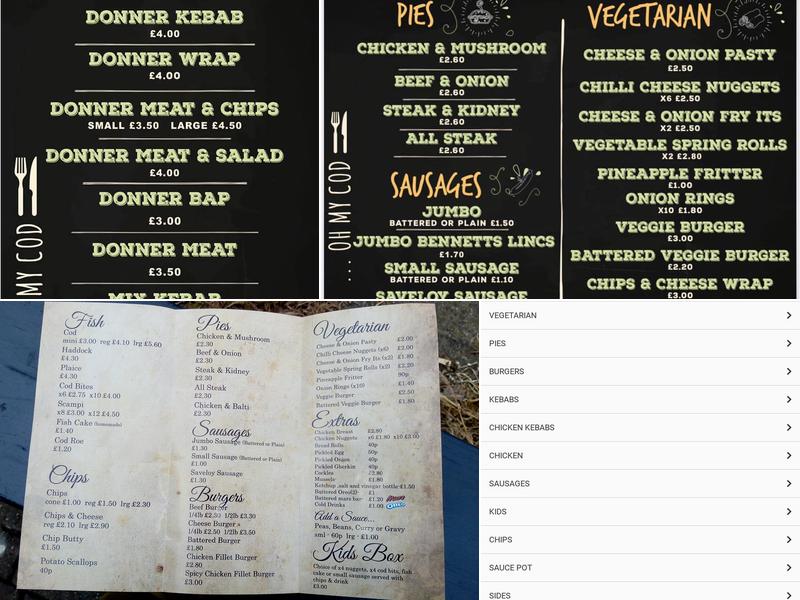 DONNER KEBAB
£4.00
DONNER WRAP
£4.00
DONNER MEAT & CHIPS
SMALL £3.50 LARGE £4.50
DONNER MEAT & SALAD
£4.00
DONNER BAP
£3.00
DONNER MEAT
£3.50
MIX KEBAB
MY COD
PIES
CHICKEN & MUSHROOM
£2.60
BEEF & ONION
£2.60
STEAK & KIDNEY
£2.60
ALL STEAK
£2.60
SAUSAGES
JUMBO
BATTERED OR PLAIN £1.50
JUMBO BENNETTS LINCS
£1.70
SMALL SAUSAGE
BATTERED OR PLAIN £1.10
SAVELOY SAUSAGE
... OH MY COD
VEGETARIAN
CHEESE & ONION PASTY
£2.50
CHILLI CHEESE NUGGETS
X6 £2.50
CHEESE & ONION FRY ITS
X2 £2.50
VEGETABLE SPRING ROLLS
X2 £2.80
PINEAPPLE FRITTER
£1.00
ONION RINGS
X10 £1.80
VEGGIE BURGER
£3.00
BATTERED VEGGIE BURGER
£2.20
CHIPS & CHEESE WRAP
£3.00
Fish
Cod
mini £3.00 reg £4.10 lrg £5.60
Haddock
£4.30
Plaice
£4.30
Cod Bites
x6 £2.75 x10 £4.00
Scampi
x8 £3.00 x12 £4.50
Fish Cake (homemade)
£1.40
Cod Roe
£1.20
Chips
Chips
cone £1.00 reg £1.50 lrg £2.30
Chips & Cheese
reg £2.10 lrg £2.90
Chip Butty
£1.50
Potato Scallops
40p
Pies
Chicken & Mushroom
£2.30
Beef & Onion
£2.30
Steak & Kidney
£2.30
All Steak
£2.30
Chicken & Balti
£2.30
Sausages
Jumbo Sausage (Battered or Plain)
£1.30
Small Sausage (Battered or Plain)
£1.00
Saveloy Sausage
£1.30
Burgers
Beef Burger
1/4lb £2.30 1/2lb £3.30
Cheese Burger
1/4lb £2.50 1/2lb £3.50
Battered Burger
£1.80
Chicken Fillet Burger
£2.80
Spicy Chicken Fillet Burger
£3.00
Vegetarian
Cheese & Onion Pasty £2.00
Chilli Cheese Nuggets (x6) £2.00
Cheese & Onion Fry Its (x2) £1.80
Vegetable Spring Rolls (x2) £2.20
Pineapple Fritter 90p
Onion Rings (x10) £1.40
Veggie Burger £2.50
Battered Veggie Burger £1.80
Extras
Chicken Breast £2.80
Chicken Nuggets x6 £1.80 x10 £3.00
Bread Rolls 40p
Pickled Egg 50p
Pickled Onion 40p
Pickled Gherkin 40p
Cockles £2.80
Mussels £1.80
Ketchup ,salt and vinegar bottle £1.50
Battered Oreo(2) £1
Battered mars bar £1.20
Cold Drinks £1.00
Add a Sauce...
Peas, Beans, Curry or Gravy
sml - 60p lrg - £1.00
Kids Box
Choice of x4 nuggets, x4 cod bits, fish
cake or small sausage served with
chips & drink
£3.00
VEGETARIAN
PIES
BURGERS
KEBABS
CHICKEN KEBABS
CHICKEN
SAUSAGES
KIDS
CHIPS
SAUCE POT
SIDES